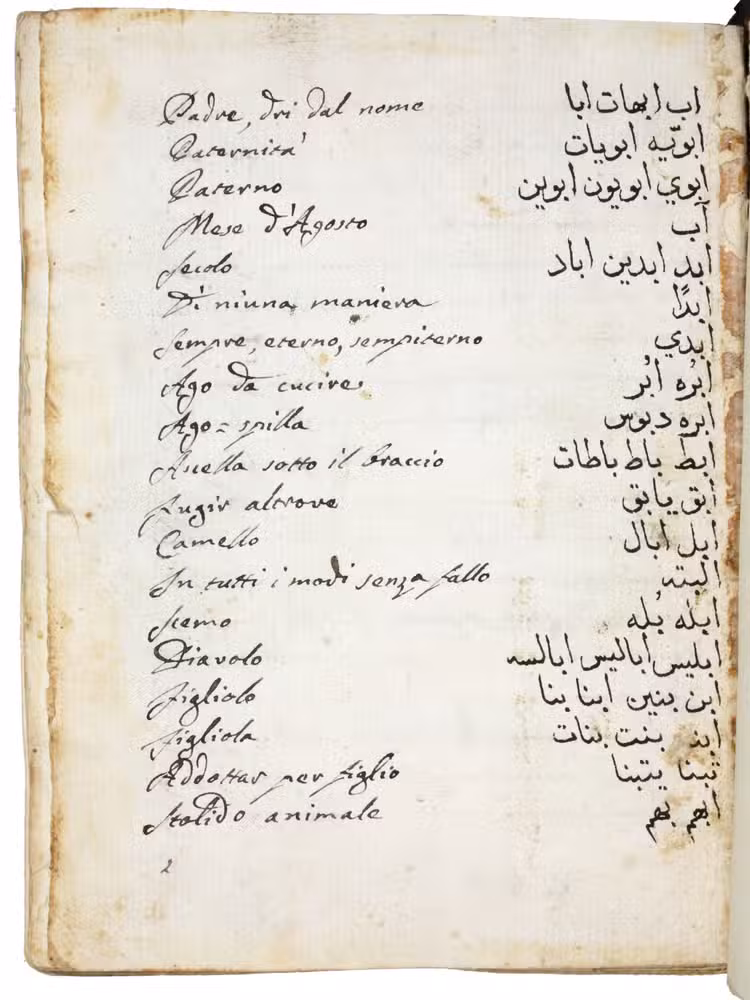 Padre, dri dal nome اب ابهات ابا
Paternità ابوّيه ابويات
Paterno ابوي ابويون ابوين
Mese d'Agosto آب
Secolo ابد ابدين اباد
Di niuna maniera ابدًا
Sempre, eterno, sempiterno ابدي
Ago da cucire ابره ابر
Ago = spilla ابره دبوس
Ascella sotto il braccio ابط باط باطات
Fugir altrove ابق يابق
Camello ابل ابال
In tutti i modi senza fallo البته
Scemo ابله بُله
Diavolo ابليس اباليس ابالسه
Figliolo ابن بنين ابنا بنا
Figliola بنت بنات
Addottar per figlio تبنا يتبنا
Stolido animale ابهم بهم
2